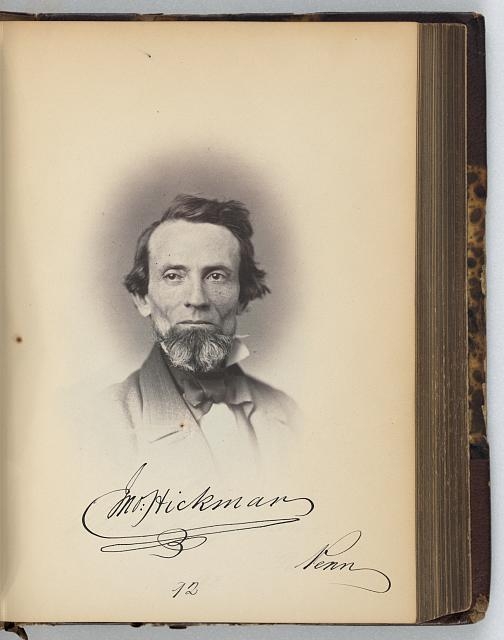 Jno: Hickman
Penn
12